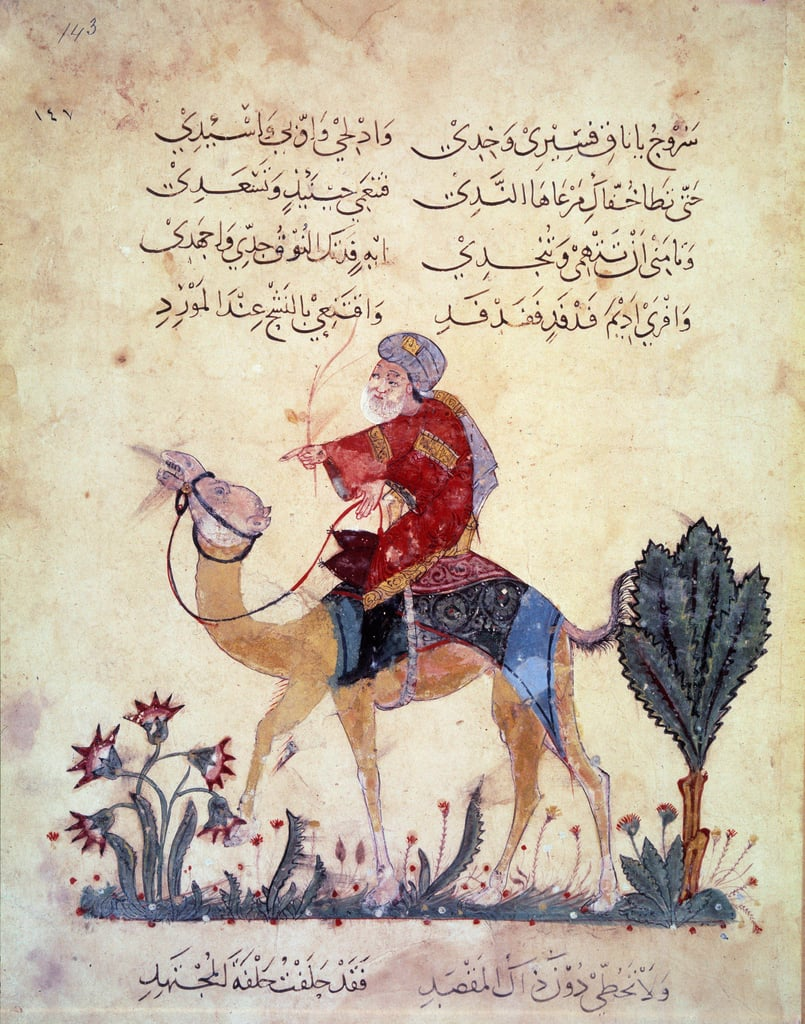 143
١٤٧
سَرُوجُ يا ناق فَسِيْرِيْ وَخِدِيْ وَادْلِجِيْ وَاوِّبِي وَاَسْئِدِيْ
حَتّى تَطَا خُفَّاكِ مَرْعَاهَا النَّدِيْ فَتَنْعَمِي حِيْنَئِذٍ وَتَسْعَدِيْ
وَتَامَنِيْ اَنْ تُتْهِمِيْ وَتُنْجِدِيْ اِيْهِ فَدَتْكِ النُّوْقُ جِدِّي وَاجْهَدِيْ
وَافْرِيْ اَدِيْمَ فَدْفَدٍ فَفَدْفَدِ وَاقْتَنِعِيْ بِالنَّشْحِ عِنْدَ الْمَوْرِدِ
وَلَا تَحُطِّيْ دُوْنَ ذَاكَ الْمَقْصَدِ فَقَدْ حَلَفْتُ حَلْفَةَ الْمُجْتَهِدِ